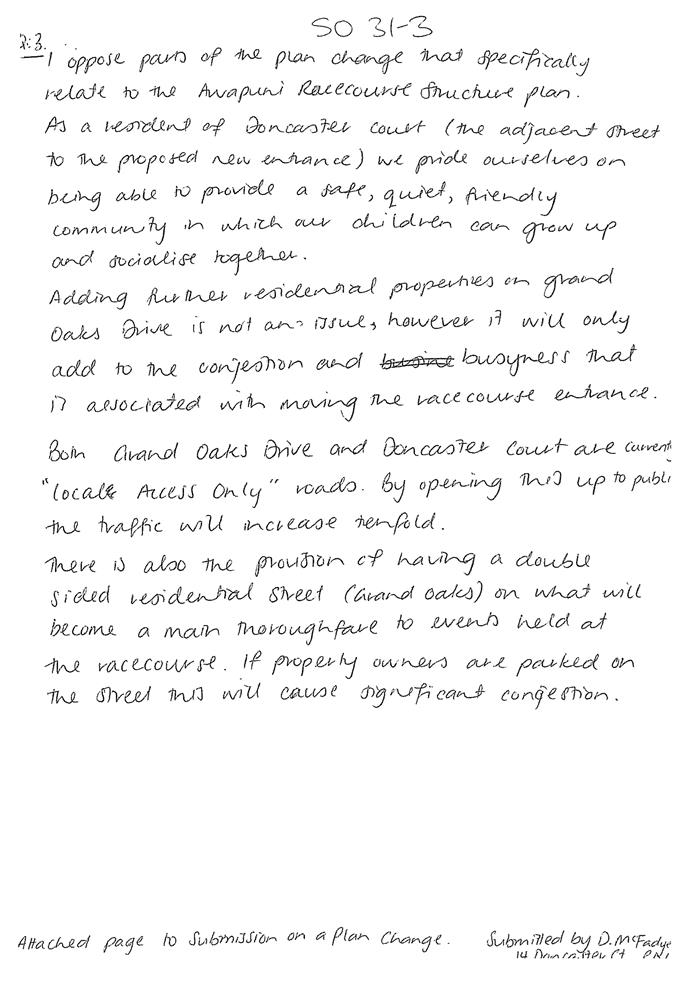 SO 31-3
2:3.
I oppose parts of the plan change that specifically
relate to the Awapuni Racecourse Structure plan.
As a resident of Doncaster Court (the adjacent street
to the proposed new entrance) we pride ourselves on
being able to provide a safe, quiet, friendly
community in which our children can grow up
and socialise together.
Adding further residential properties on grand
Oaks Drive is not an issue, however it will only
add to the conjestion and busyness that
is associated with moving the racecourse entrance.
Both Grand Oaks Drive and Doncaster Court are current
"Locals Access Only" roads. By opening this up to publi
the traffic will increase tenfold.
There is also the provision of having a double
sided residential street (Grand Oaks) on what will
become a main thoroughfare to events held at
the racecourse. If property owners are parked on
the street this will cause significant congestion.
Attached page to Submission on a Plan Change. Submitted by D. McFadye
14 Doncaster Ct